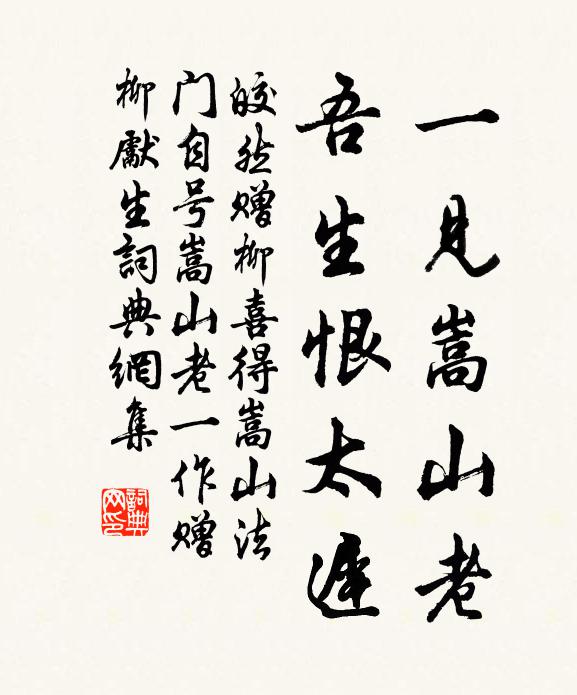 一见嵩山老
吾生恨太遲
皎然赠柳喜得嵩山法
门自号嵩山老一作赠
柳獻生詞典網集
詞典网印